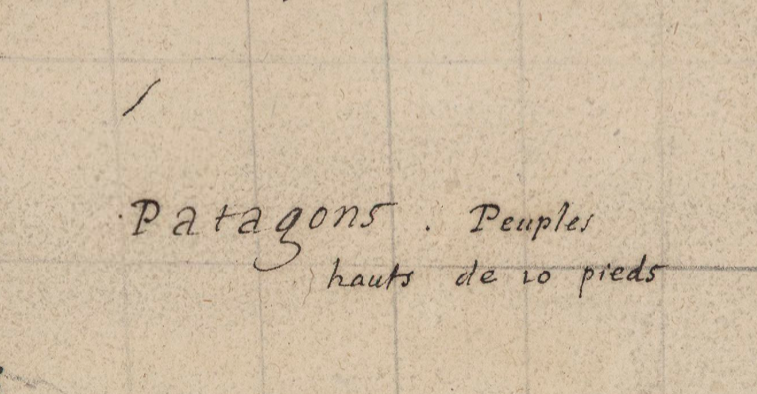 Patagons. Peuples
hauts de 10 pieds